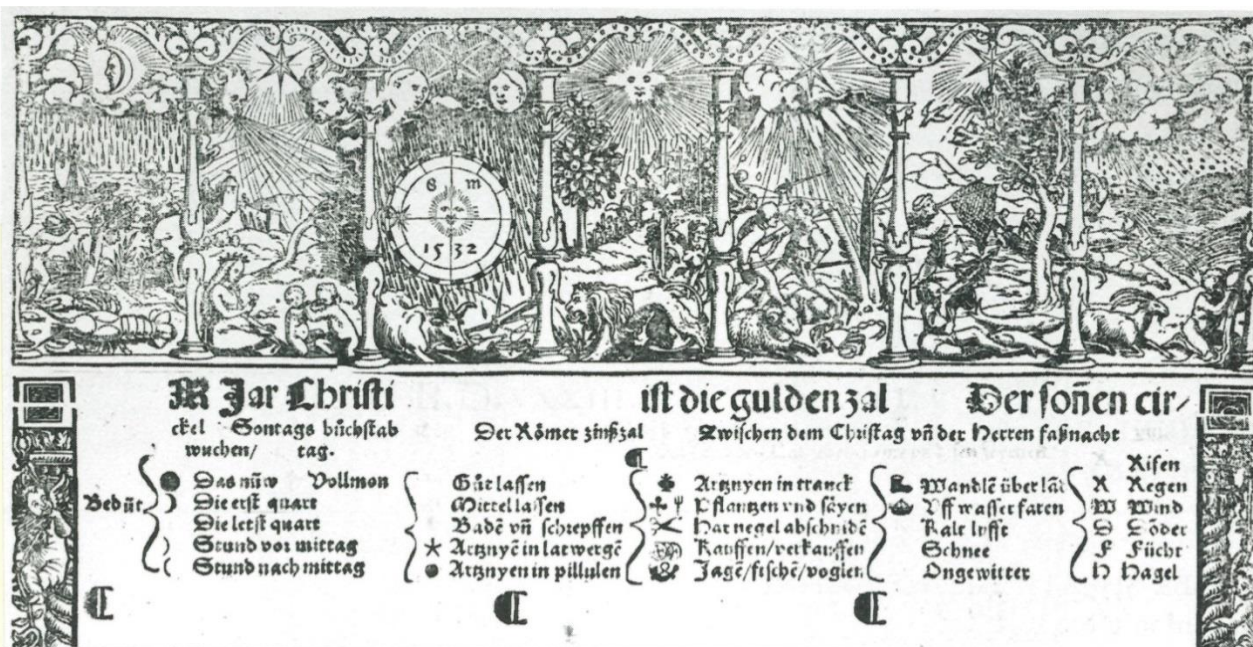 8 m
15 32
M Jar Christi ist die gulden zal Der soñen cir/
ckel Sontags bůchstab Der Römer zinßzal Zwischen dem Christag vñ der Herren faßnacht
wuchen/ tag.
Bedüt
Das nüw Vollmon
Die erst quart
Die letst quart
Stund vor mittag
Stund nach mittag
Gůt lassen
Mittel lassen
Badē vñ schrepffen
Artznyē in latwergē
Artznyen in pillulen
Artznyen in tranck
Pflantzen vnd säyen
Har negel abschnidē
Kauffen/verkauffen
Jagē/fischē/voglen
Wandlē über
Vff wasser faren
Kalt lufft
Schnee
Ongewitter
Rifen
R Regen
W Wind
D Döder
F Fücht
H Hagel